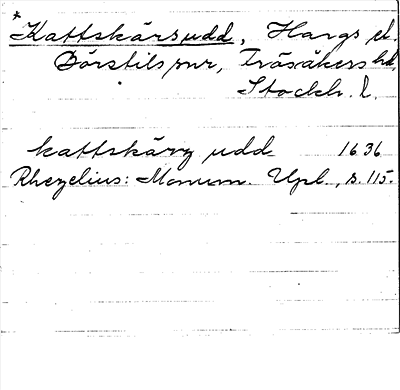 *Kattskärsudd, Hargs sk.
Börstils snr, Frösåkers hd,
Stockh. l.
kattskärz udd 1636
Rhezelius: Monum. Upl., s. 115.